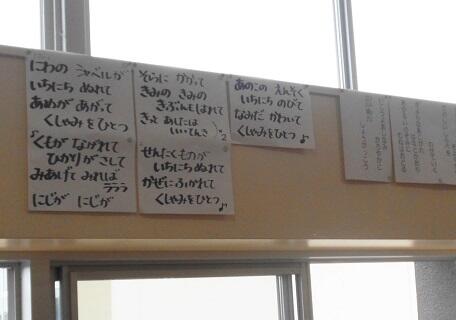 にわの シャベルが
いちにち ぬれて
あめが あがって
くしゃみを ひとつ
くもが ながれて
ひかりが さして
みあげて みれば
ラララ
にじが にじが
そらに かかって
きみの きみの
きぶんも はれて
きっと あしたは
いい てんき
×2
せんたくものが
いちにち ぬれて
かぜに ふかれて
くしゃみを ひとつ♪
あのこの えんそく
いちにち のびて
なみだ かわいて
くしゃみを ひとつ♪